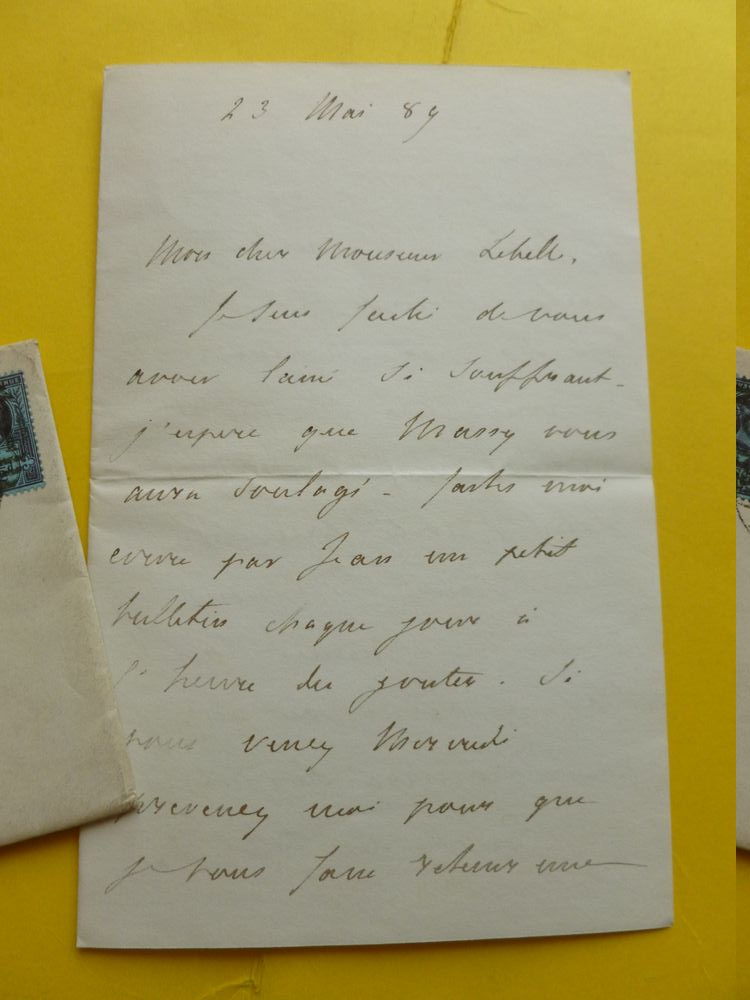 23 Mai 89
Mon cher Monsieur Lebell,
Je suis fachi de vous
avoir laissé si souffrant -
j'espere que Massy vous
aura soulagé - faites moi
ecrire par Jean un petit
bulletin chaque jour à
l'heure du gouter. Si
vous venez Mercredi
prevenez moi pour que
je vous fasse retenir une